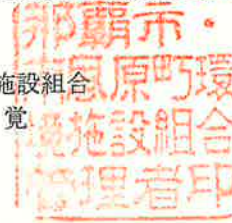 施設組合
覚
那覇市・
南風原町環
境施設組合
管理者印